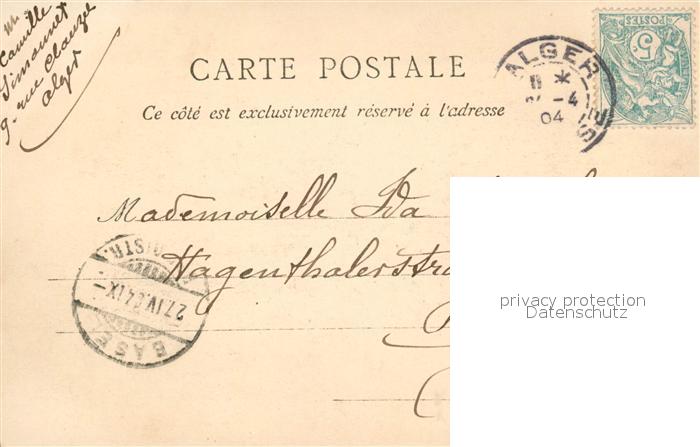 Camille
Simonnet
9 rue Clauzel
Alger
CARTE POSTALE
Ce côté est exclusivement réservé à l'adresse
ALGER
-4
04
POSTES
5
Mademoiselle Ida
Hagenthalerstra
BASEL
27.IV.04.IX-
privacy protection
Datenschutz